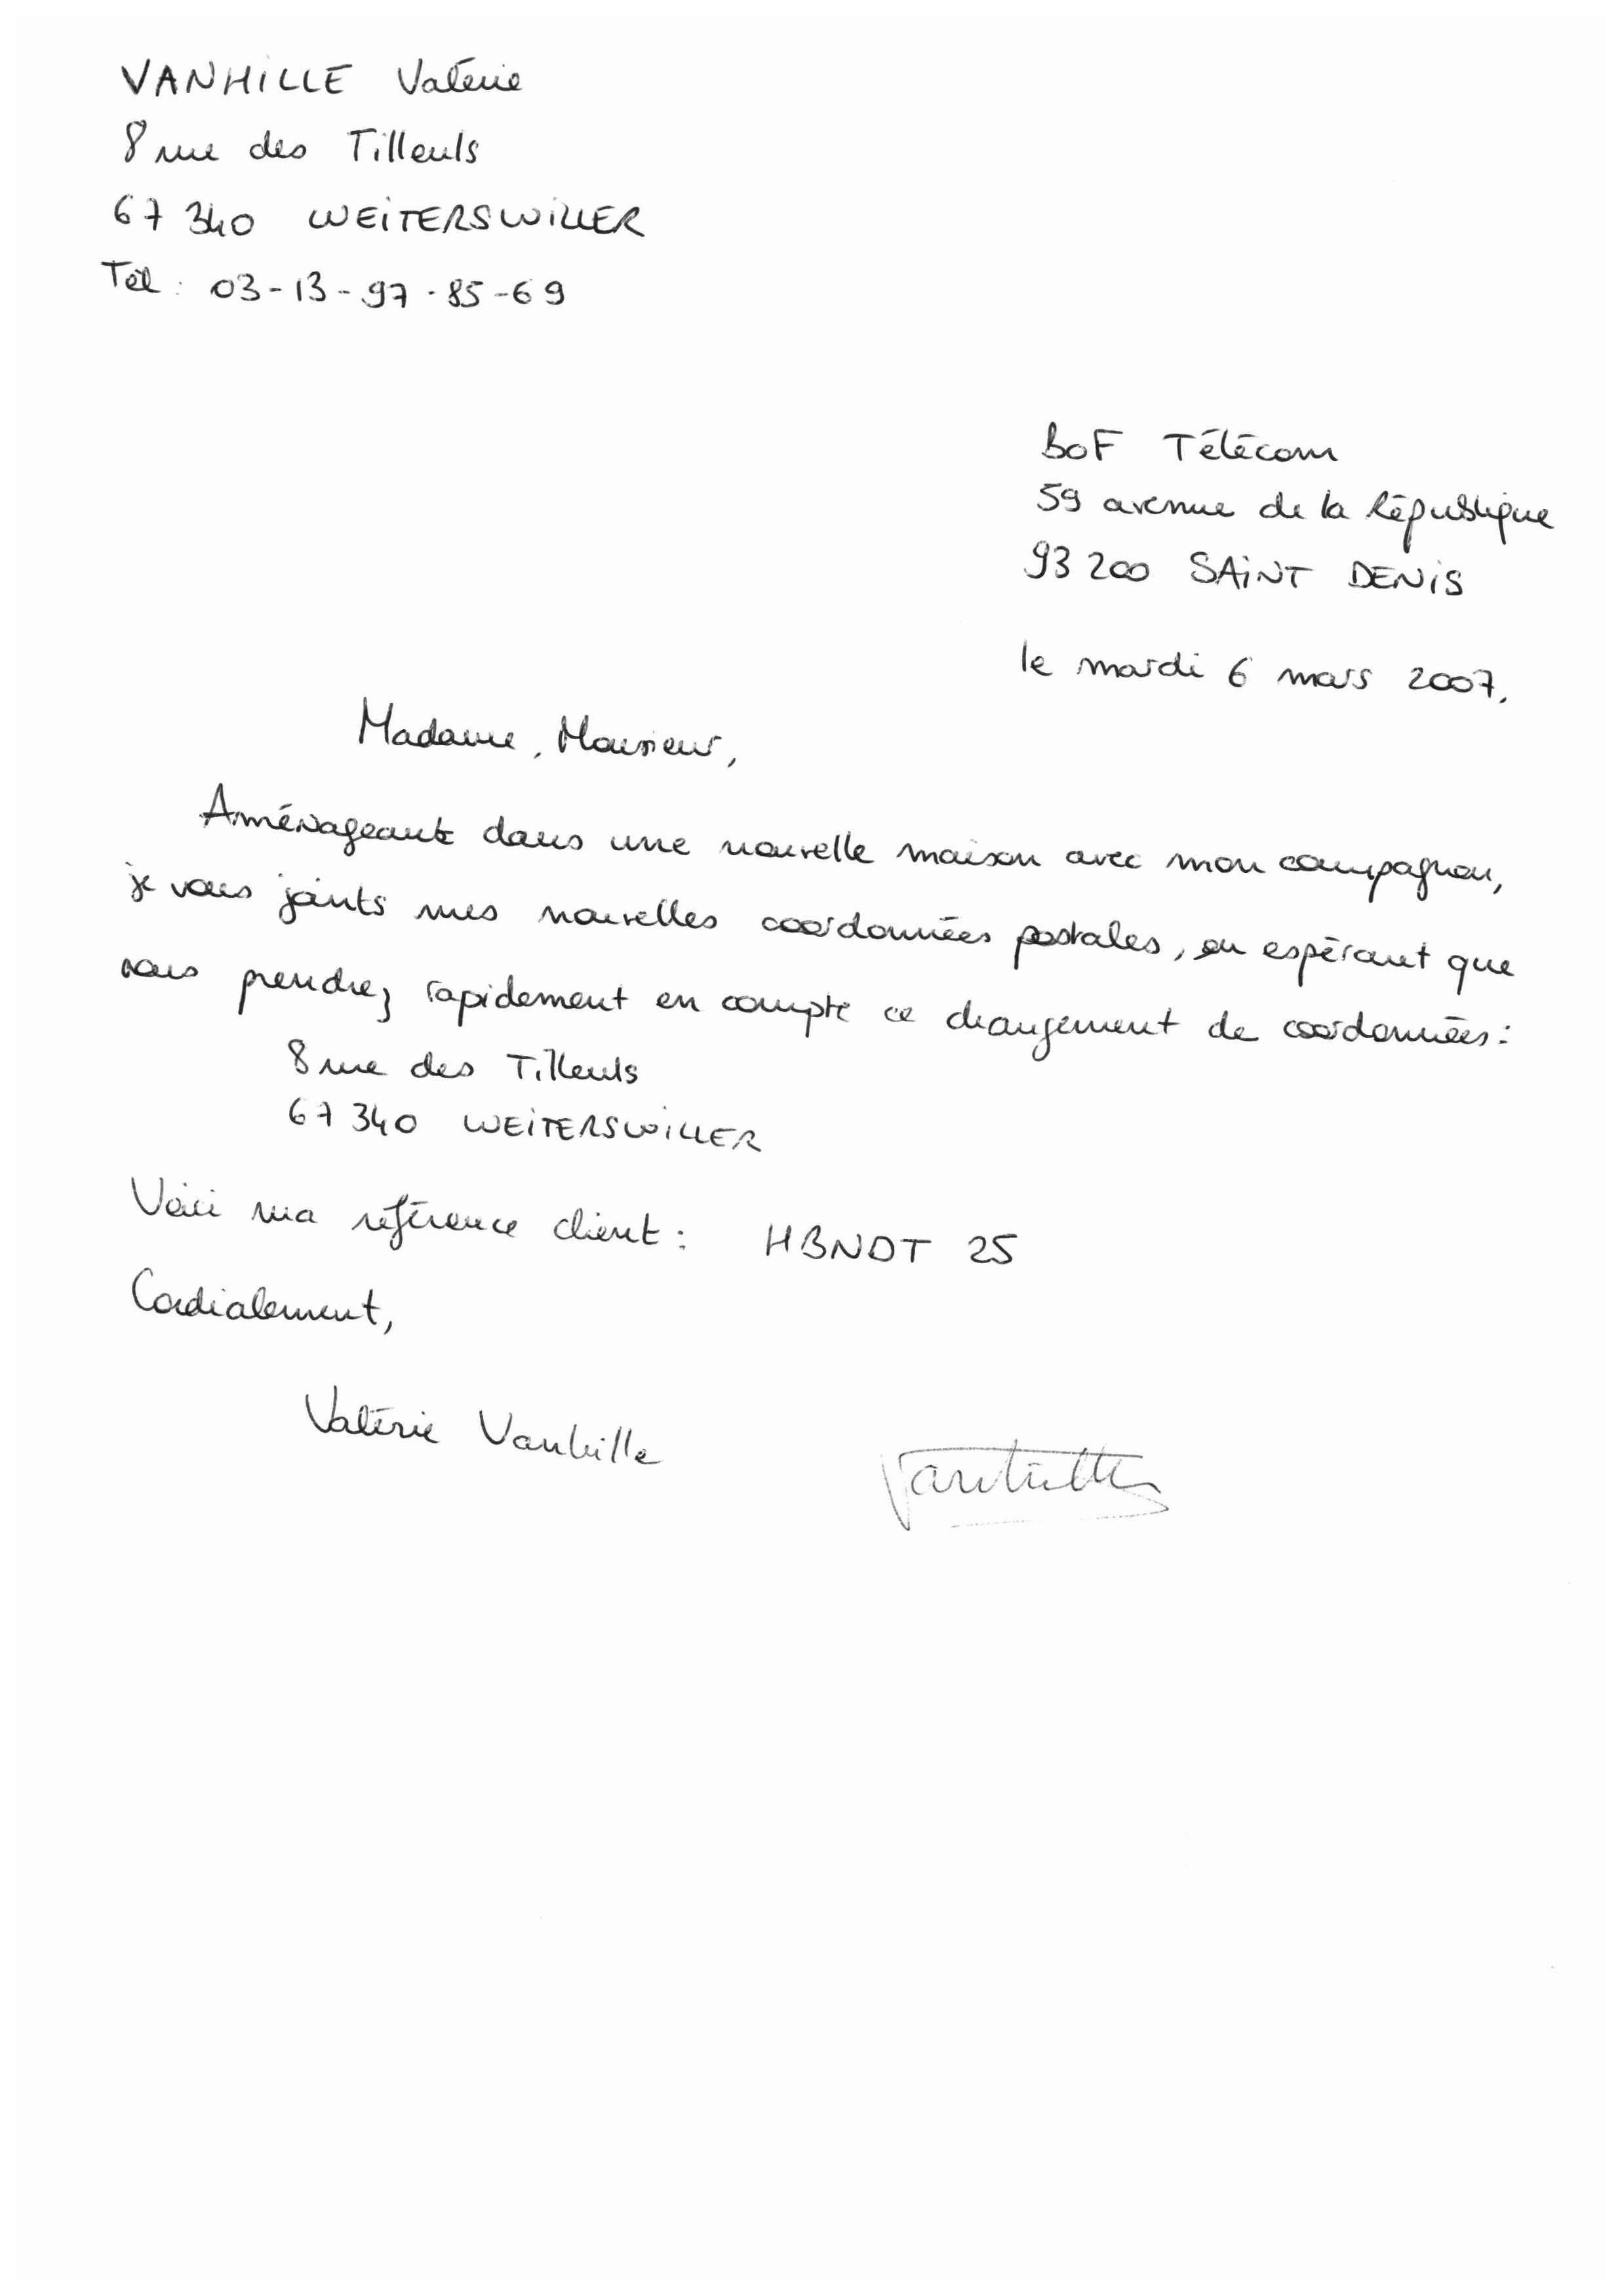 VANHILLE Valérie
8 rue des Tilleuls
67 340 WEITERSWILLER
Tél : 03-13-97-85-69
BOF Télécom
59 avenue de la République
93 200 SAINT DENIS
le mardi 6 mars 2007.
Madame, Monsieur,
Aménageant dans une nouvelle maison avec mon compagnon,
je vous joints mes nouvelles coordonnées postales, en espérant que
vous prendrez rapidement en compte ce changement de coordonnées :
8 rue des Tilleuls
67 340 WEITERSWILLER
Voici ma référence client : HBNDT 25
Cordialement,
Valérie Vanhille
Vanhille